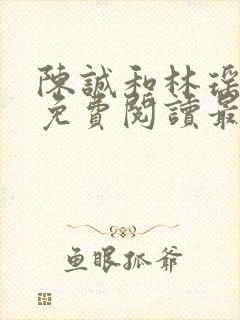 陳誠和林瑤
免費閱讀最
鱼眼孤爷